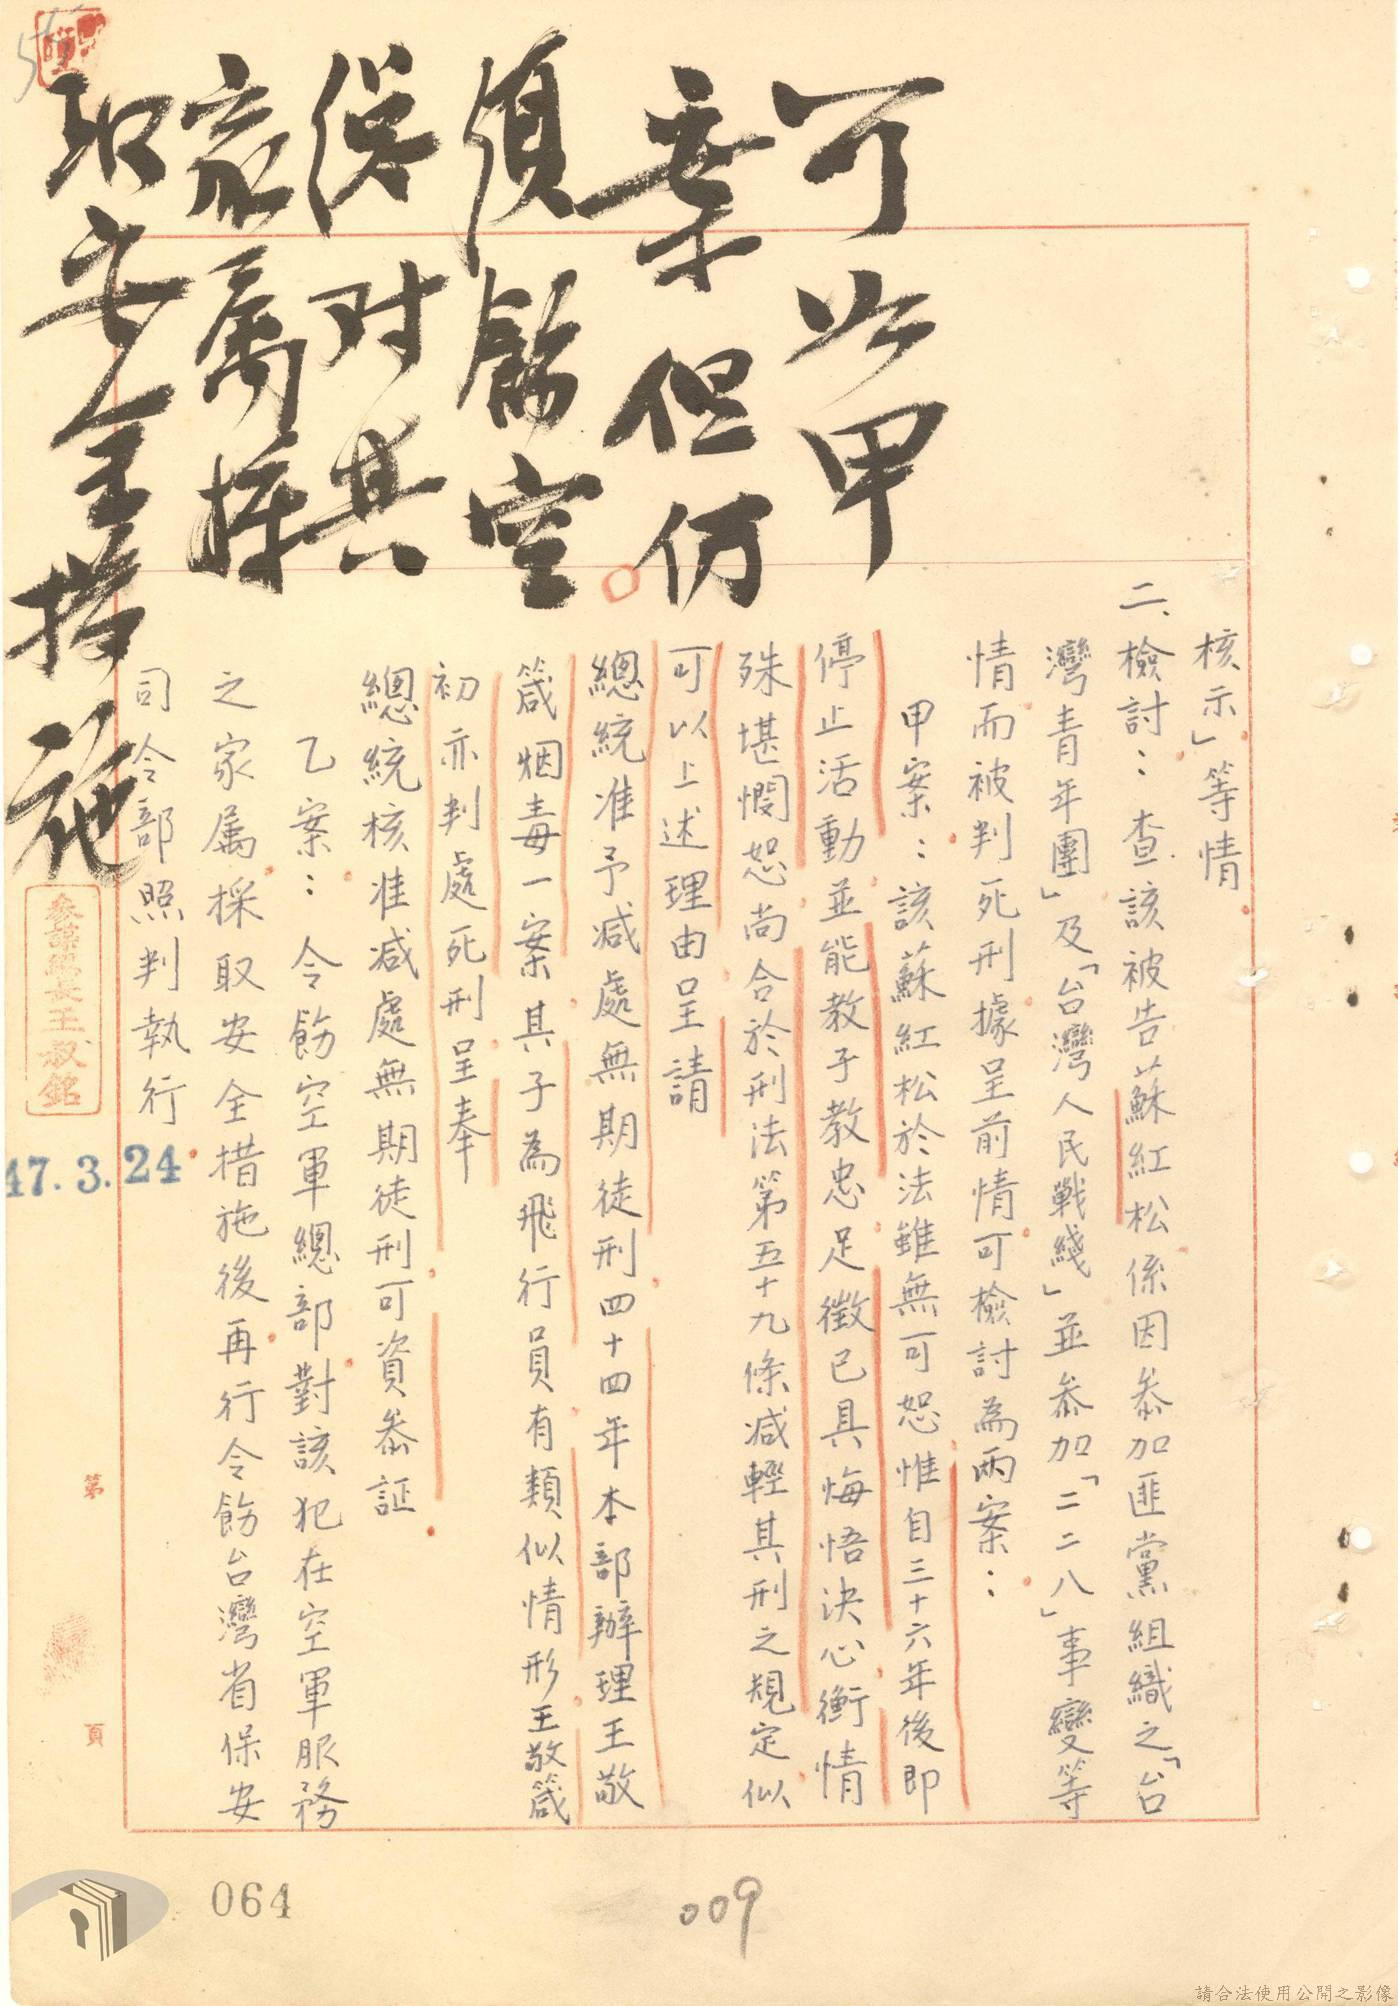 可以甲
案但仍
須飭空
總對其
家屬採
取安全措施
核示」等情
二、檢討：查該被告蘇紅松係因參加匪黨組織之「台
灣青年團」及「台灣人民戰綫」並參加「二二八」事變等
情而被判死刑據呈前情可檢討為兩案：
甲案：該蘇紅松於法雖無可恕惟自三十六年後即
停止活動並能教子教忠足徵已具悔悟決心衡情
殊堪憫恕尚合於刑法第五十九條減輕其刑之規定似
可以上述理由呈請
總統准予減處無期徒刑四十四年本部辦理王敬
箴烟毒一案其子為飛行員有類似情形王敬箴
初亦判處死刑呈奉
總統核准減處無期徒刑可資參証
乙案：令飭空軍總部對該犯在空軍服務
之家属採取安全措施後再行令飭台灣省保安
司令部照判執行
參謀總長王叔銘
47.3.24
第
頁
064
009
請合法使用公開之影像